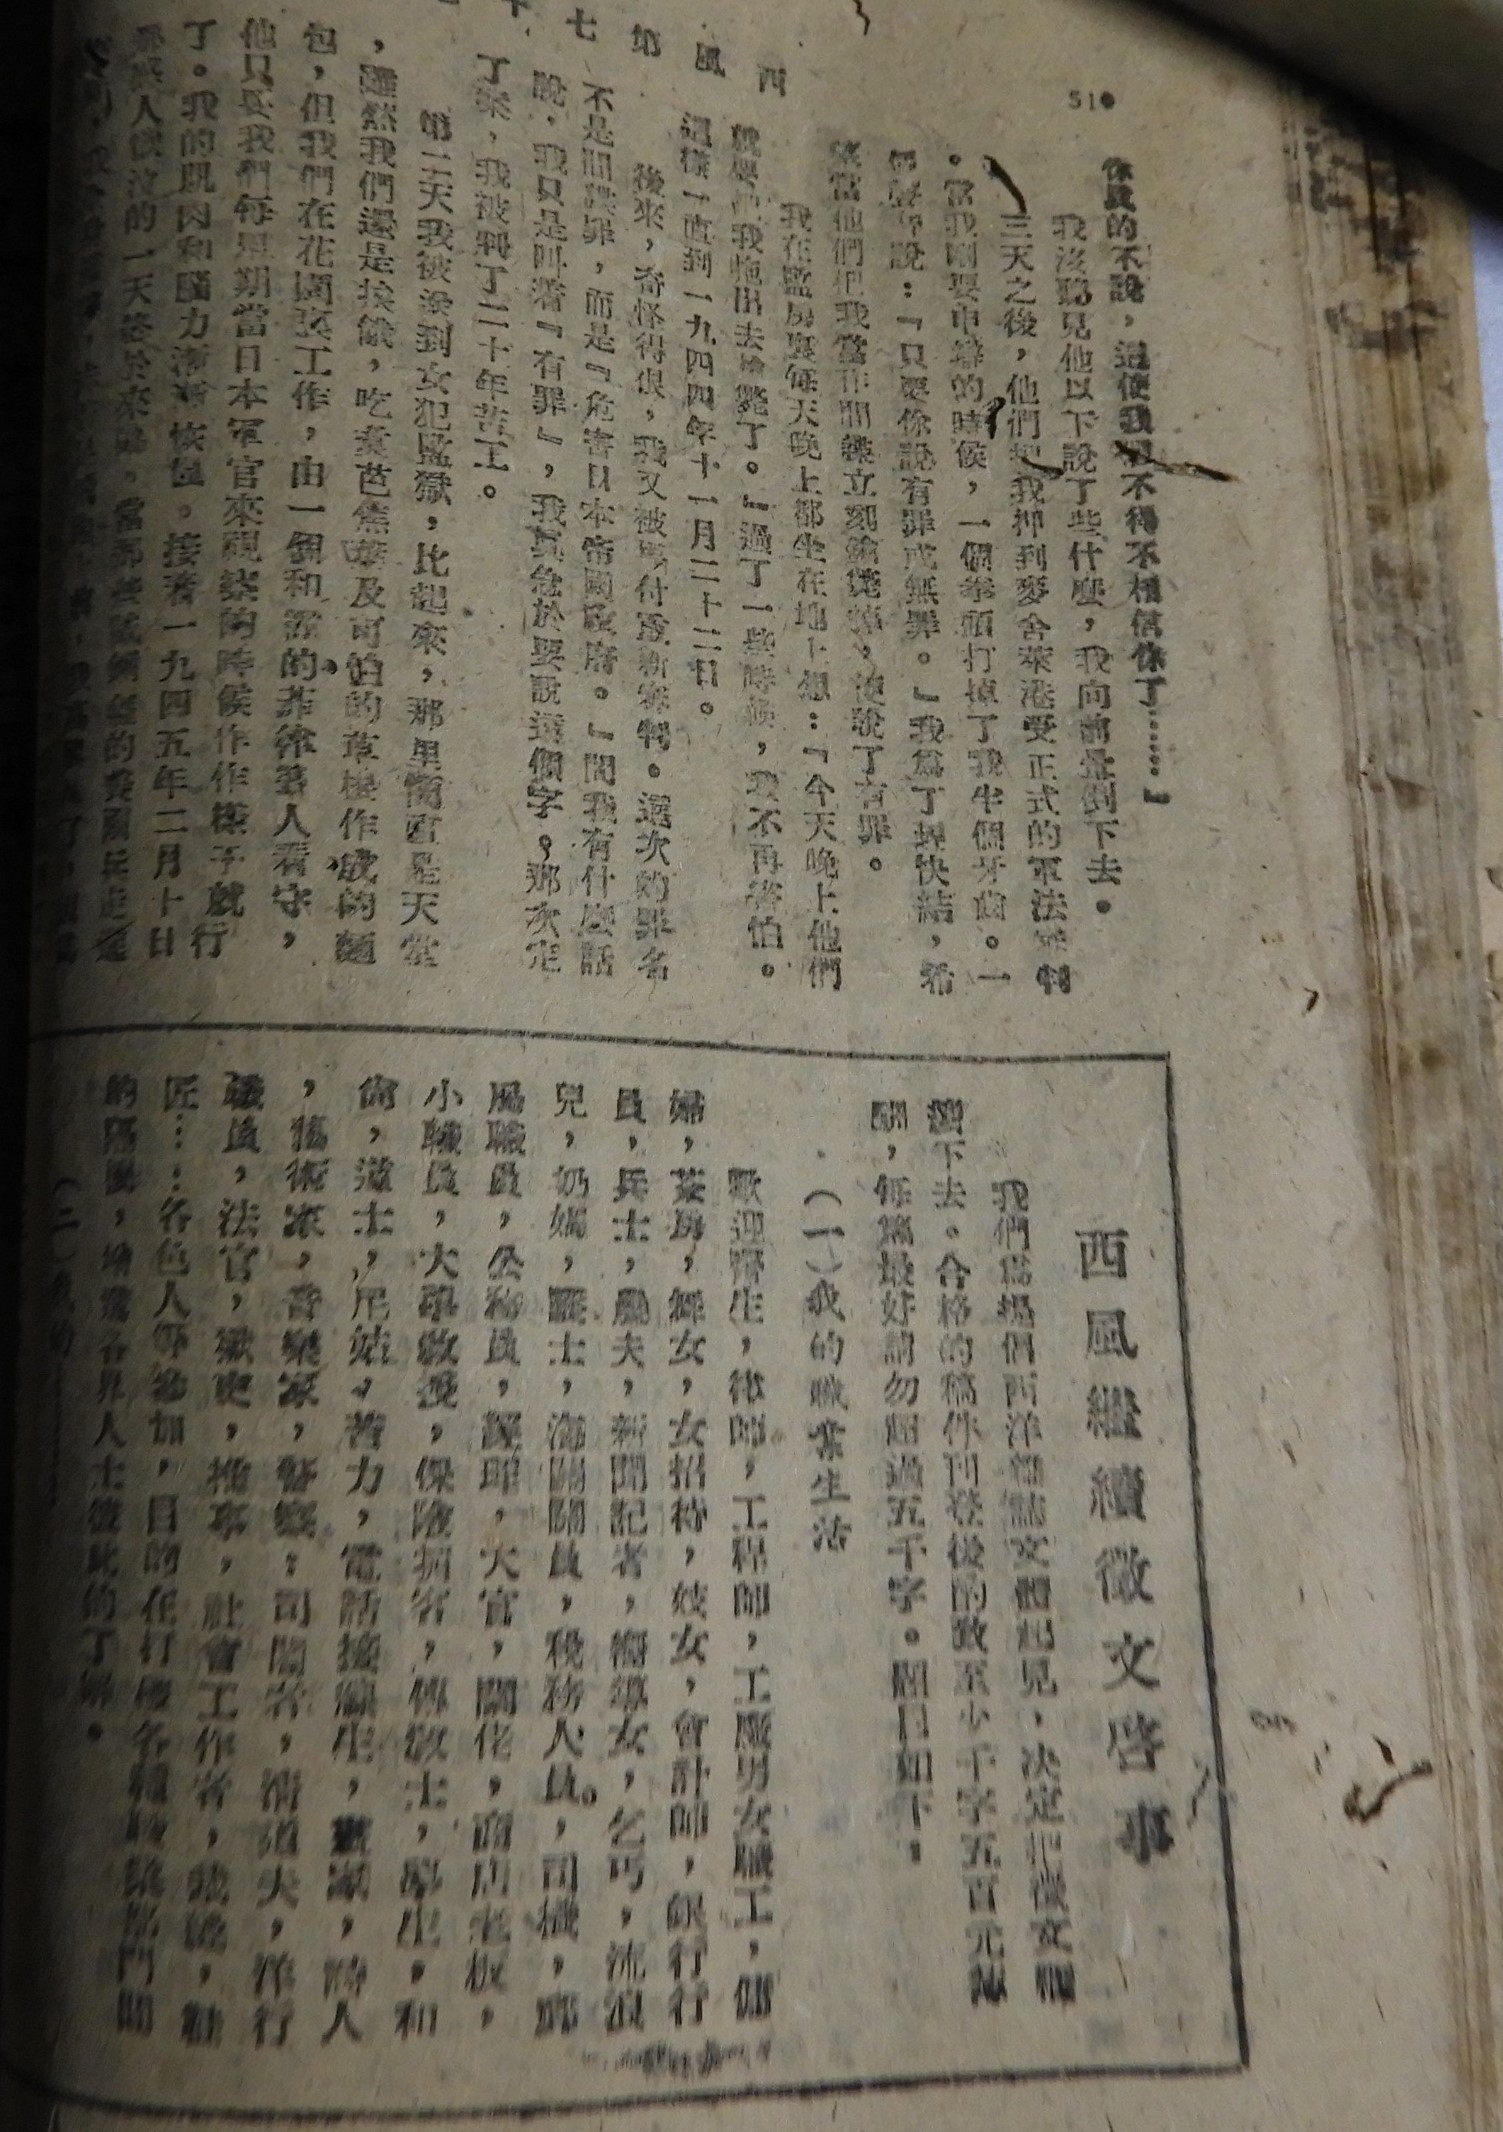 510
西風　第　七十
你說的不說，迫使我們不得不相信你了……』
我沒聽見他以下說了些什麼，我向前暈倒下去。
三天之後，他們把我押到麥舍萊港受正式的軍法審判
。當我剛要申辯的時候，一個拳頭打掉了我半個牙齒。一
個聲音說：『只要你說有罪或無罪。』我爲了趕快結，希
望當他們把我當作間諜立刻槍斃掉，便說了有罪。
我在監房裏每天晚上都坐在地上想：『今天晚上他們
就要把我拖出去槍斃了。』過了一些時候，我不再害怕。
這樣一直到一九四四年十一月二十二日。
後來，奇怪得很，我又被馬付重新審判。這次的罪名
不是間諜罪，而是『危害日本帝國政府。』問我有什麼話
說，我只是叫着『有罪』，我真急於要說這個字。那次定
了案，我被判了二十年苦工。
第二天我被送到女犯監獄，比起來，那里簡直是天堂
，雖然我們還是挨餓，吃着芭蕉葉及可怕的草樓作成的麵
包，但我們在花園裏工作，由一個和靄的菲律賓人看守，
他只要我們每星期當日本軍官來視察的時候作作樣子就行
了。我的肌肉和腦力漸漸恢復。接着一九四五年二月十日
的一天終於來臨。當那些
西風繼續徵文啓事
我們爲提倡西洋雜誌文體起見，決定把徵文欄
續下去。合格的稿件刊登後酌致至少千字五百元薄
酬，每篇最好請勿超過五千字。題目如下，
（一）我的職業生活
歡迎醫生，律師，工程師，工廠男女職工，傭
婦，茶房，舞女，女招待，妓女，會計師，銀行行
員，兵士，鹿夫，新聞記者，嚮導女，乞丐，流浪
兒，奶媽，護士，海關關員，稅務人員。，司機，郵
局職員，公務員，經理，大官，闊佬，商店老板，
小職員，大學教授，保險掮客，傳教士，學生，和
尙，道士，尼姑，苦力，電話接線生，畫家，詩人
，藝術家，音樂家，警察；司閽者，清道夫，洋行
職員，法官，獄吏，推事，社會工作者，裁縫，鞋
匠……各色人等參加，目的在打破各種職業部門間
的隔閡，增進各界人士彼此的了解。
（二）我的